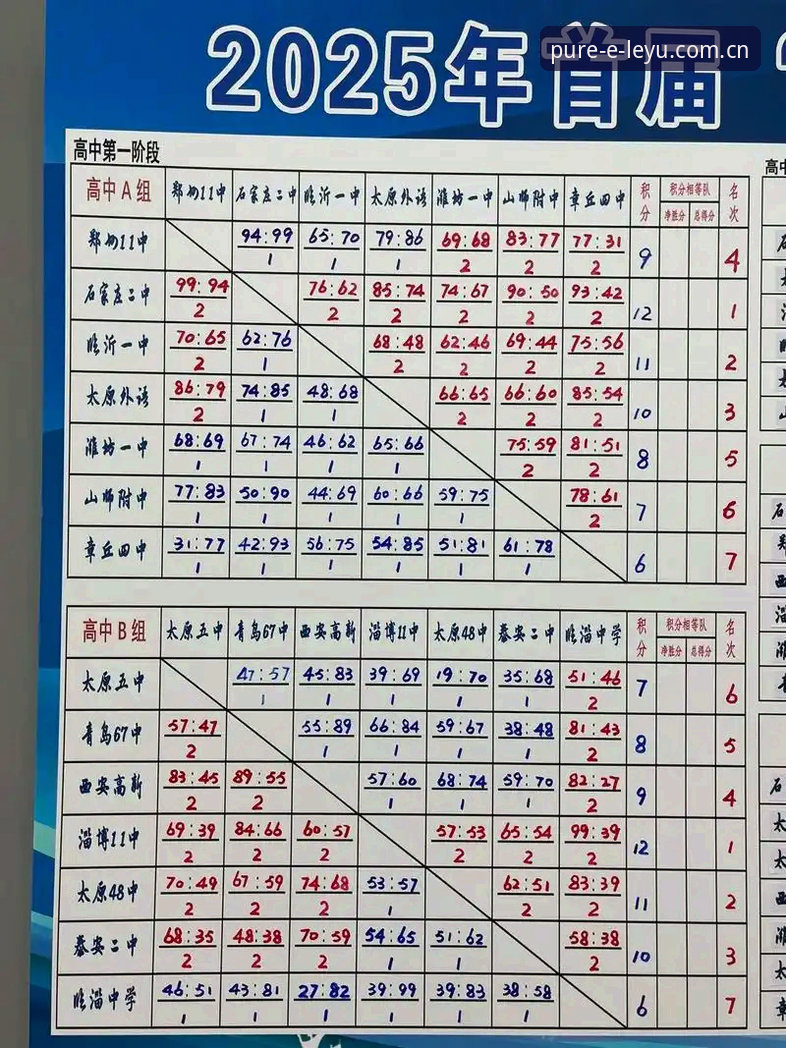 2025年首届
pure-e-leyu.com.cn
高中第一阶段
高中A组 郑州11中 石家庄二中 临沂一中 太原外语 潍坊一中 山师附中 章丘四中 积分 积分相等队 净胜分 总得分 名次
郑州11中 94:99 65:70 79:86 69:68 83:77 77:31
1 1 1 2 2 2 9 4
石家庄二中 99:94 76:62 85:74 74:67 90:50 93:42
2 2 2 2 2 2 12 1
临沂一中 70:65 62:76 68:48 62:46 69:44 75:56
2 1 2 2 2 2 11 2
太原外语 86:79 74:85 48:68 66:65 66:60 85:54
2 1 1 2 2 2 10 3
潍坊一中 68:69 67:74 46:62 65:66 75:59 81:51
1 1 1 1 2 2 8 5
山师附中 77:83 50:90 44:69 60:66 59:75 78:61
1 1 1 1 1 2 7 6
章丘四中 31:77 42:93 56:75 54:85 51:81 61:78
1 1 1 1 1 1 6 7
高中B组 太原五中 青岛67中 西安高新 淄博11中 太原48中 泰安二中 临淄中学 积分 积分相等队 净胜分 总得分 名次
太原五中 47:57 45:83 39:69 19:70 35:68 51:46
1 1 1 1 1 2 7 6
青岛67中 57:47 55:89 66:84 59:67 38:48 81:43
2 1 1 1 1 2 8 5
西安高新 83:45 89:55 57:60 68:74 59:70 82:27
2 2 1 1 1 2 9 4
淄博11中 69:39 84:66 60:57 57:53 65:54 99:39
2 2 2 2 2 2 12 1
太原48中 70:49 67:59 74:68 53:57 62:51 83:39
2 2 2 1 2 2 11 2
泰安二中 68:35 48:38 70:59 54:65 51:62 58:38
2 2 2 1 1 2 10 3
临淄中学 46:51 43:81 27:82 39:99 39:83 38:58
1 1 1 1 1 1 6 7